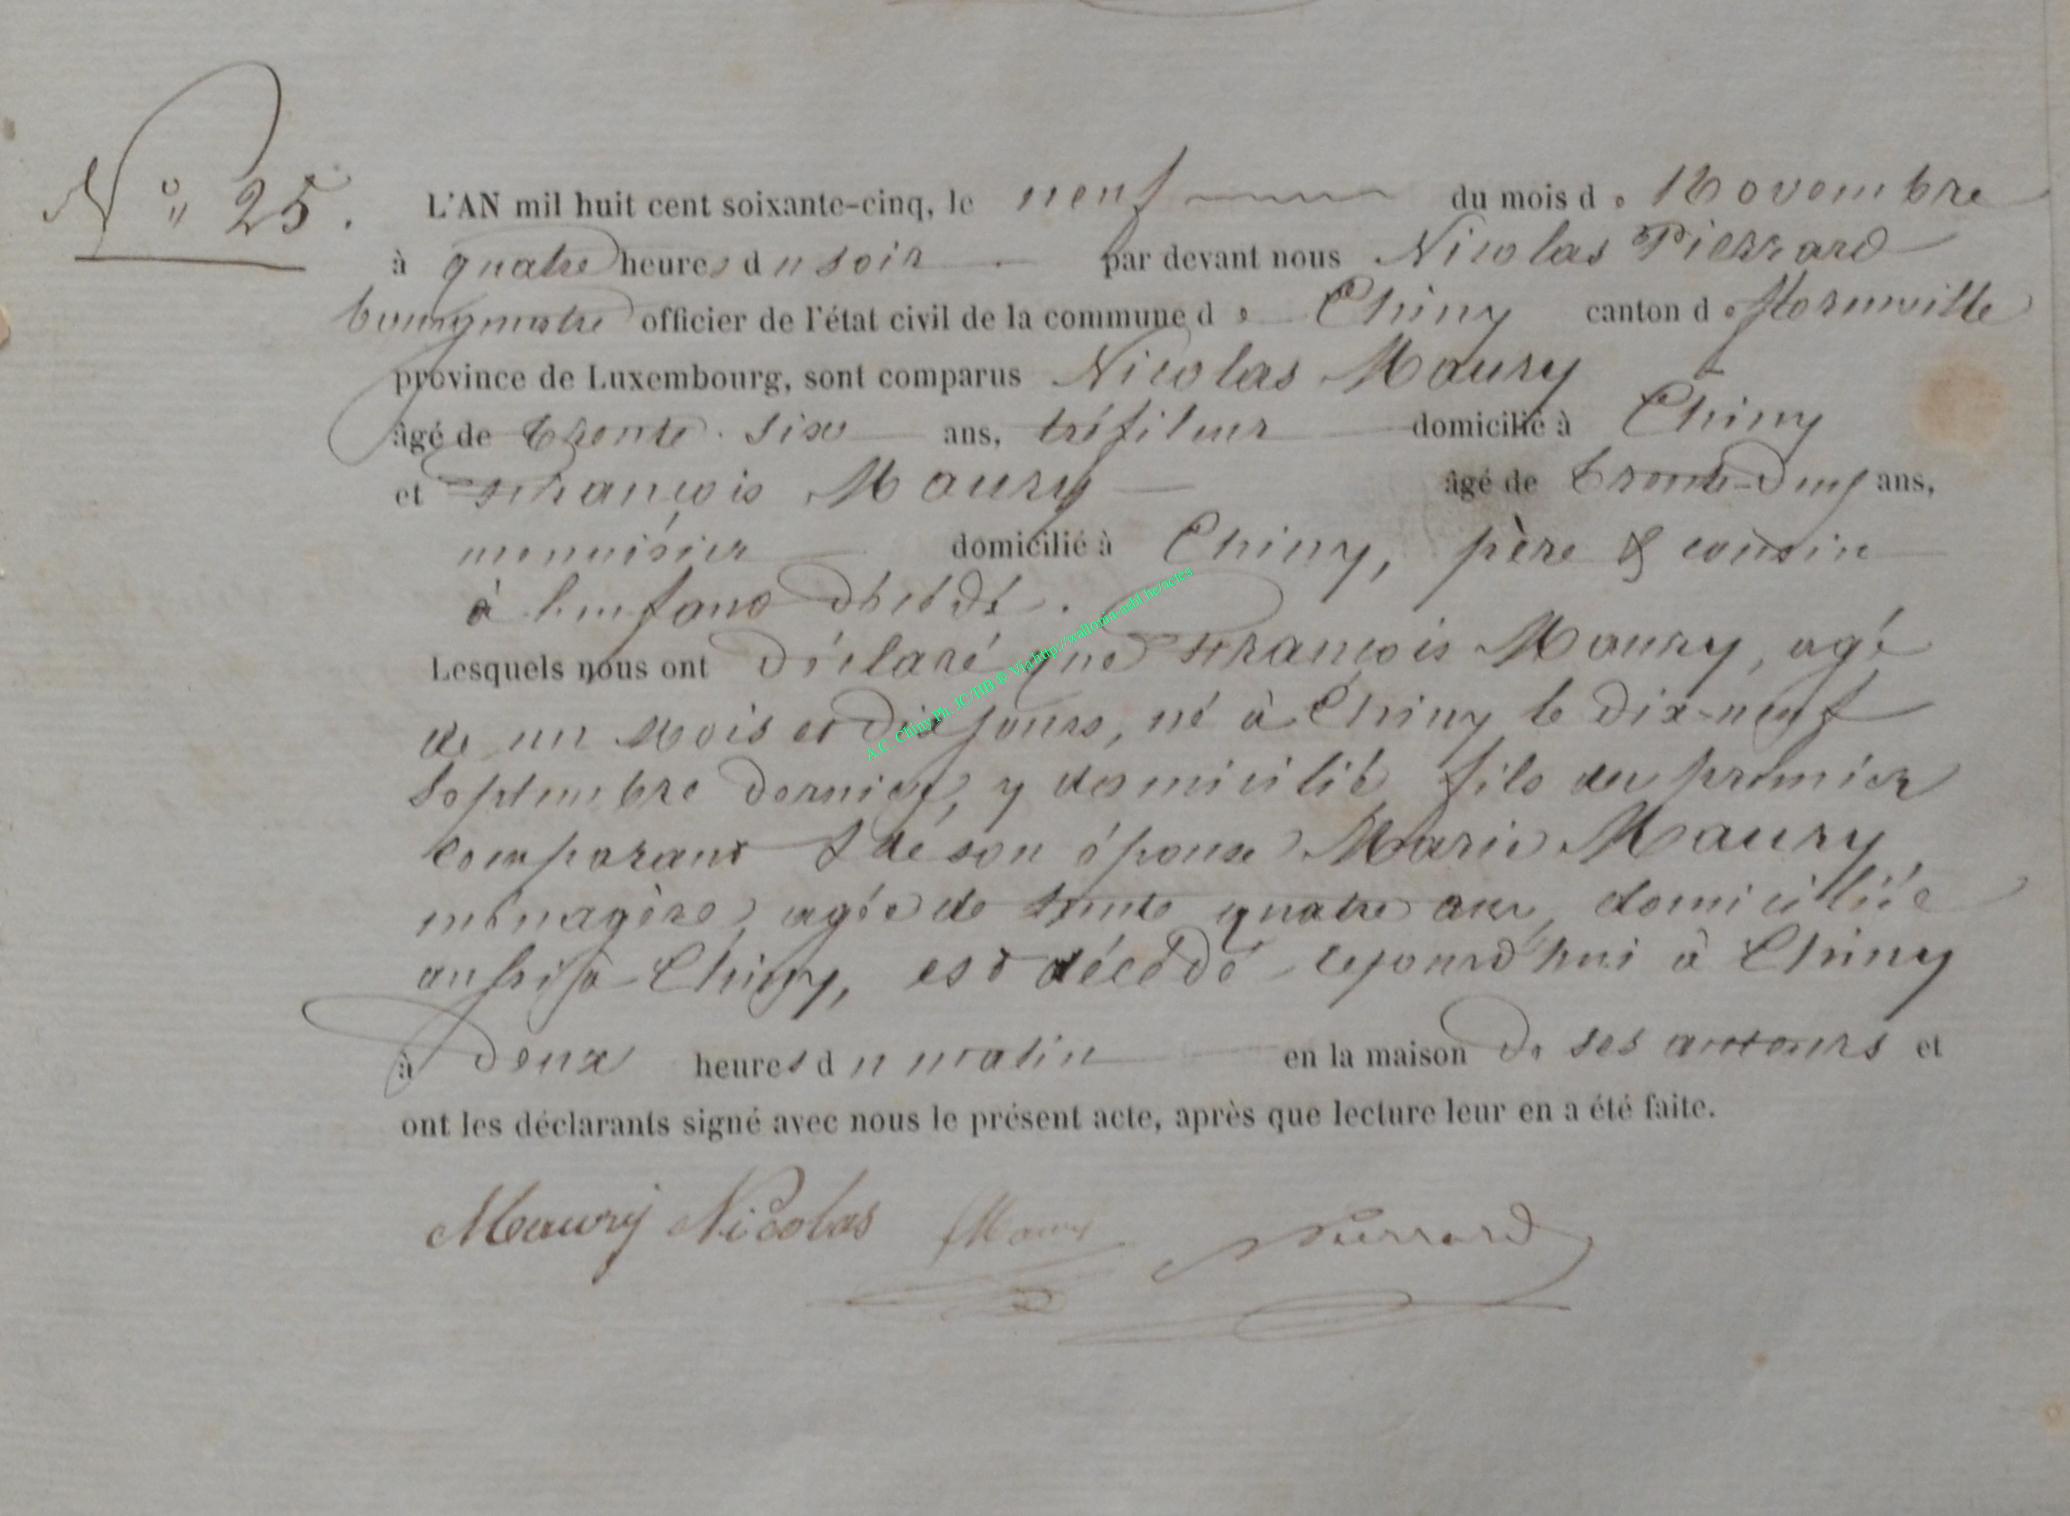 N° 25.
L'AN mil huit cent soixante-cinq, le neuf du mois de Novembre
à quatre heures du soir par devant nous Nicolas Pierrard
bourgmestre officier de l'état civil de la commune de Chiny canton de Florenville
province de Luxembourg, sont comparus Nicolas Maury
âgé de trente-six ans, tréfileur domicilié à Chiny
et François Maury âgé de trente-deux ans,
menuisier domicilié à Chiny, père & cousin
à l'enfant décédé.
Lesquels nous ont déclaré que François Maury, agé
de un mois et dix jours, né à Chiny le dix-neuf
Septembre dernier, y domicilié, fils du premier
comparant & de son épouse Marie Maury,
ménagère, agée de trente quatre ans, domiciliée
aussi à Chiny, est décédé cejourd'hui à Chiny
à deux heures du matin en la maison de ses auteurs et
ont les déclarants signé avec nous le présent acte, après que lecture leur en a été faite.
Maury Nicolas Maury Pierrard
A.C. Chiny Ph. JC/HB ® Via http://wallonia-asbl.be/actes